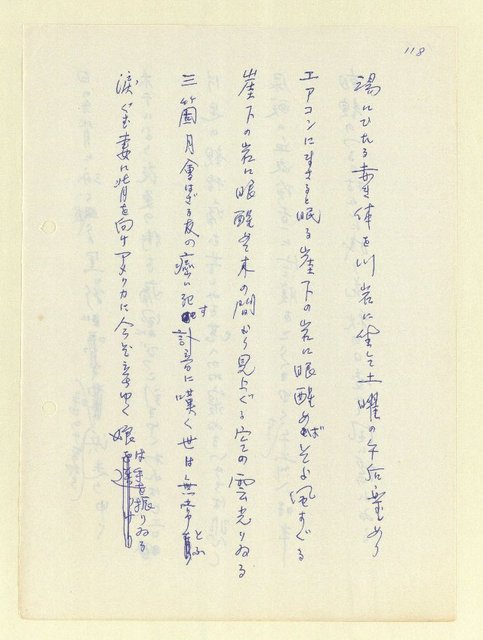 118
湯にひたる赤き体を川岩に坐して土曜の午后の
エアコンにすきると眠る崖下の岩に眼醒めればそよ風すぐる
崖下の岩に眼醒め木の間から見上ぐる空の雲光りゐる
三箇月會はざる友の癌に死す訃音に嘆く世は無常とふ
涙ぐむ妻に背を向けアメリカに今ぞ立ちゆく娘は手を振りゐる